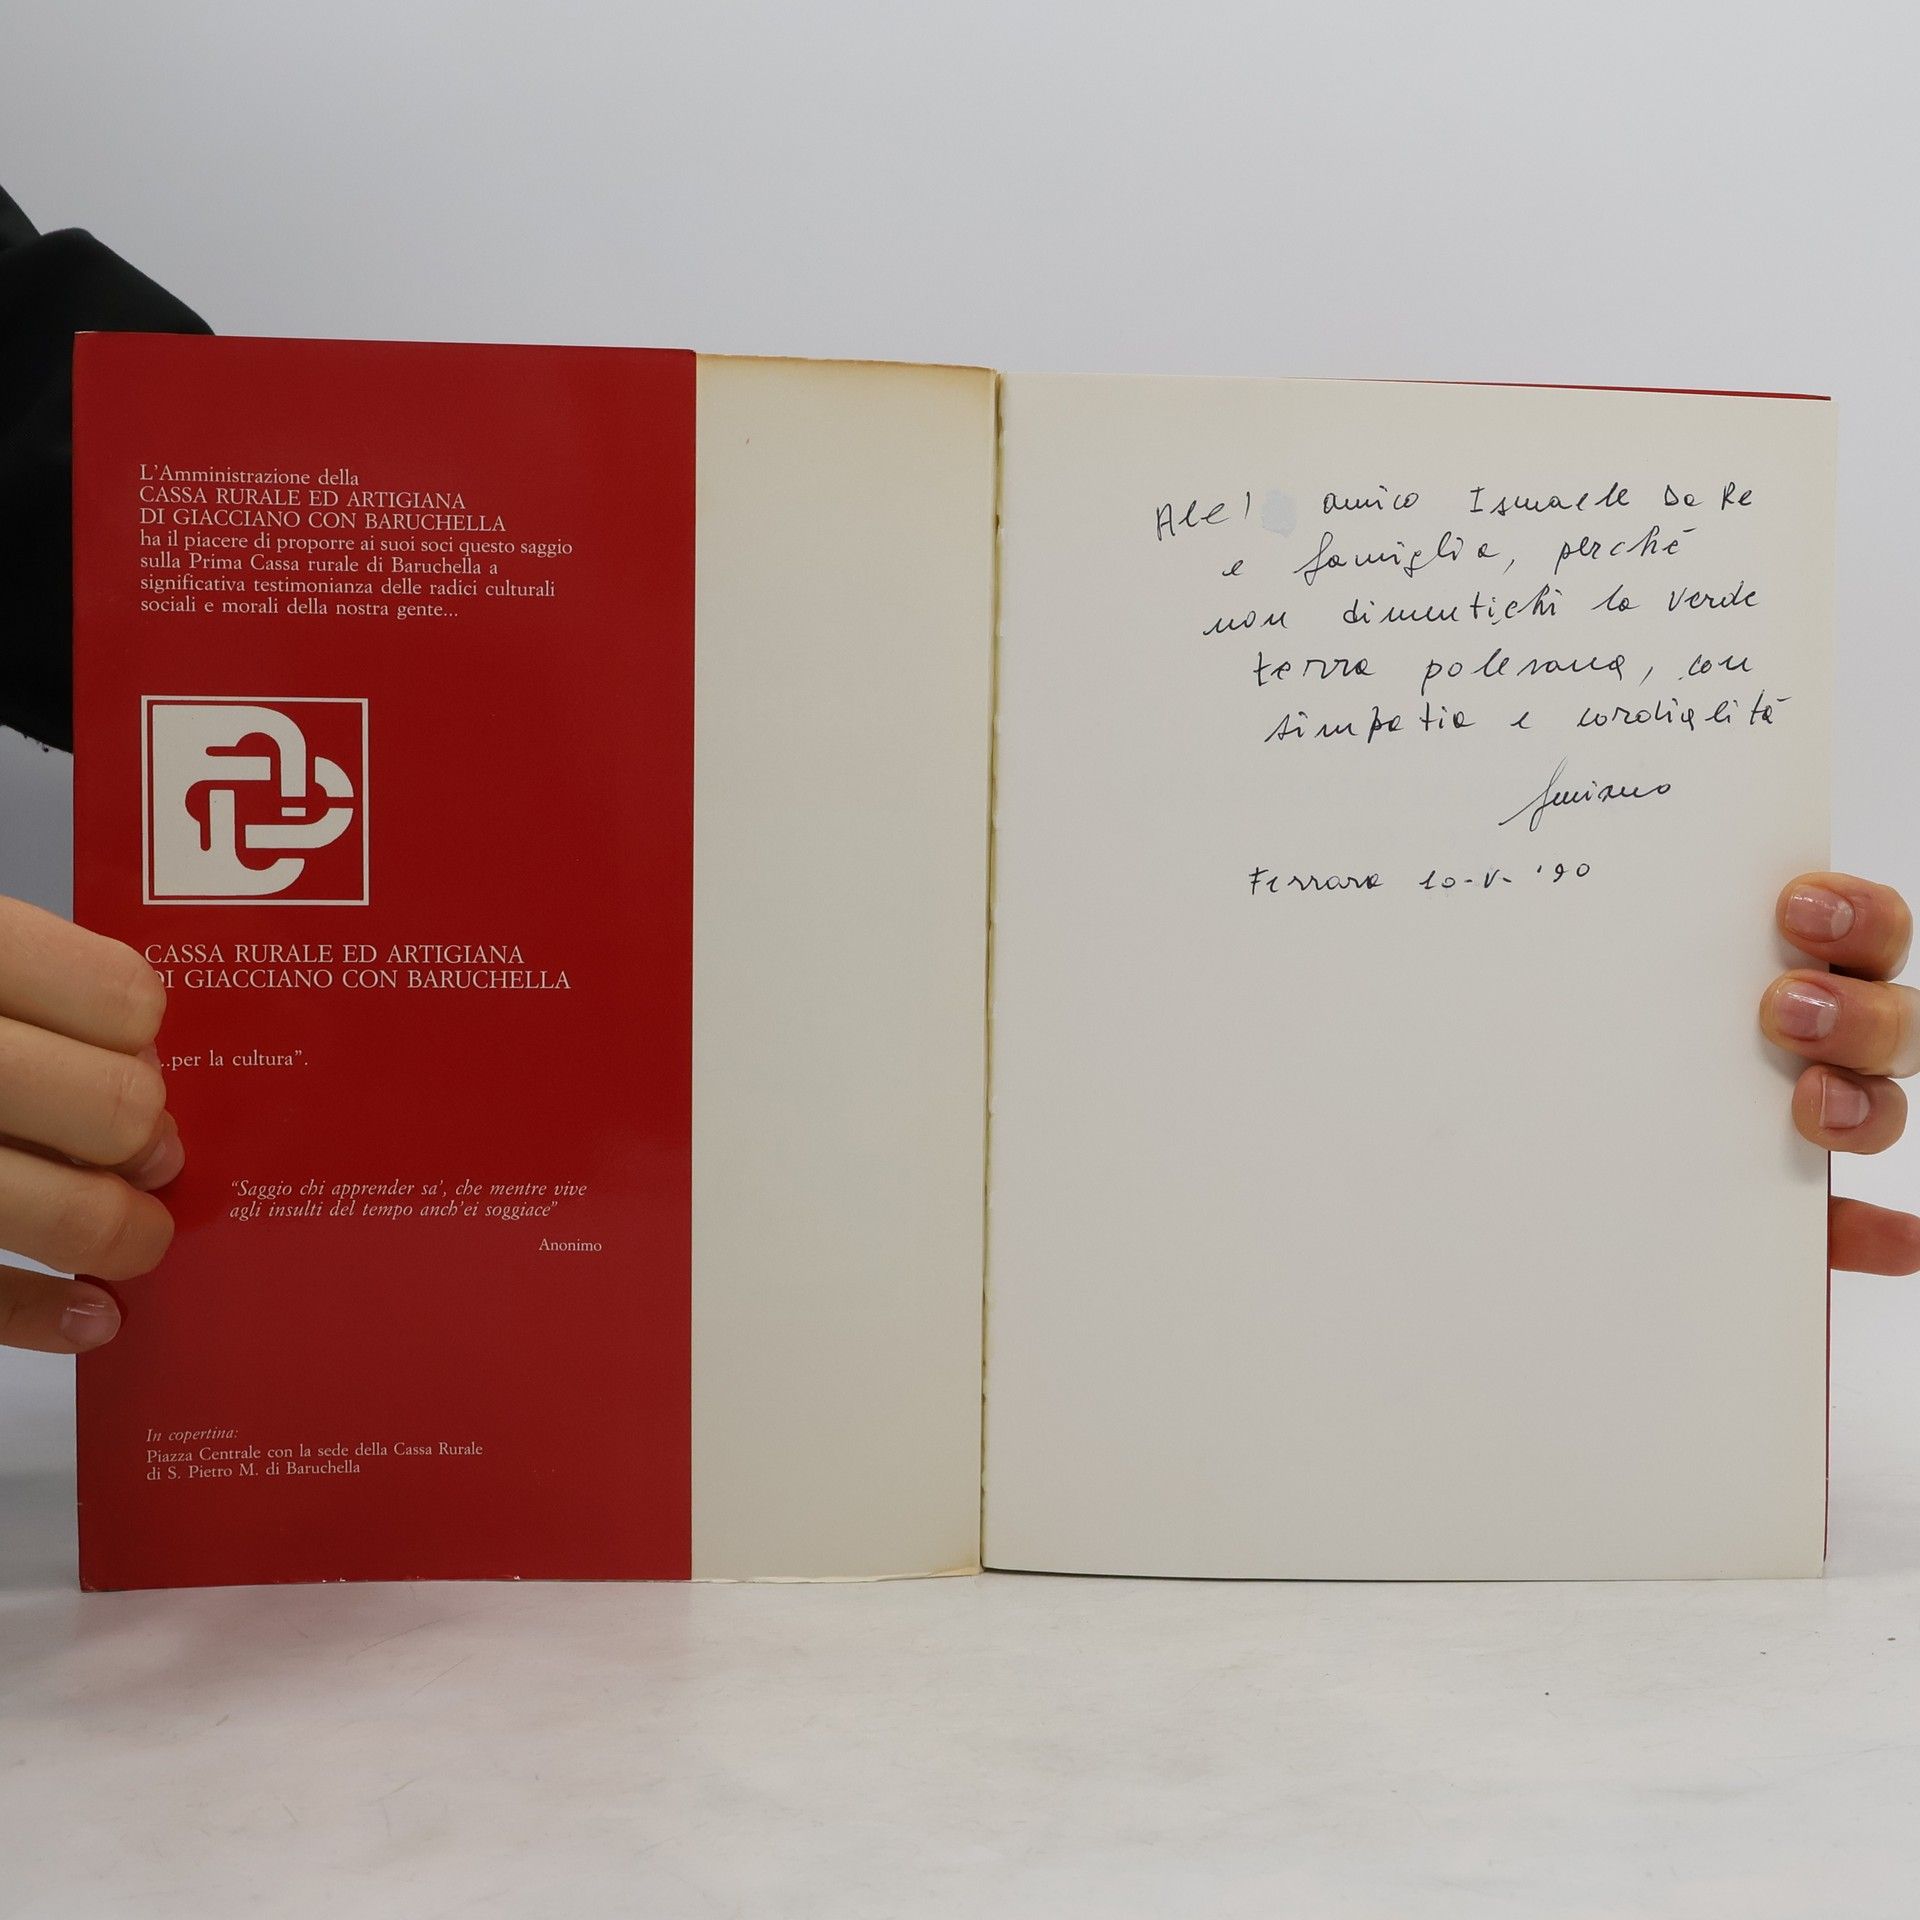 L'Amministrazione della
CASSA RURALE ED ARTIGIANA
DI GIACCIANO CON BARUCHELLA
ha il piacere di proporre ai suoi soci questo saggio
sulla Prima Cassa rurale di Baruchella a
significativa testimonianza delle radici culturali
sociali e morali della nostra gente...
CASSA RURALE ED ARTIGIANA
DI GIACCIANO CON BARUCHELLA
...per la cultura”.
“Saggio chi apprender sa', che mentre vive
agli insulti del tempo anch'ei soggiace”
Anonimo
In copertina:
Piazza Centrale con la sede della Cassa Rurale
di S. Pietro M. di Baruchella
All' amico Ismaele Da Re
e famiglia, perché
non dimentichi la verde
terra polesana, con
simpatia e cordialità
Ferrara 10-V- '90